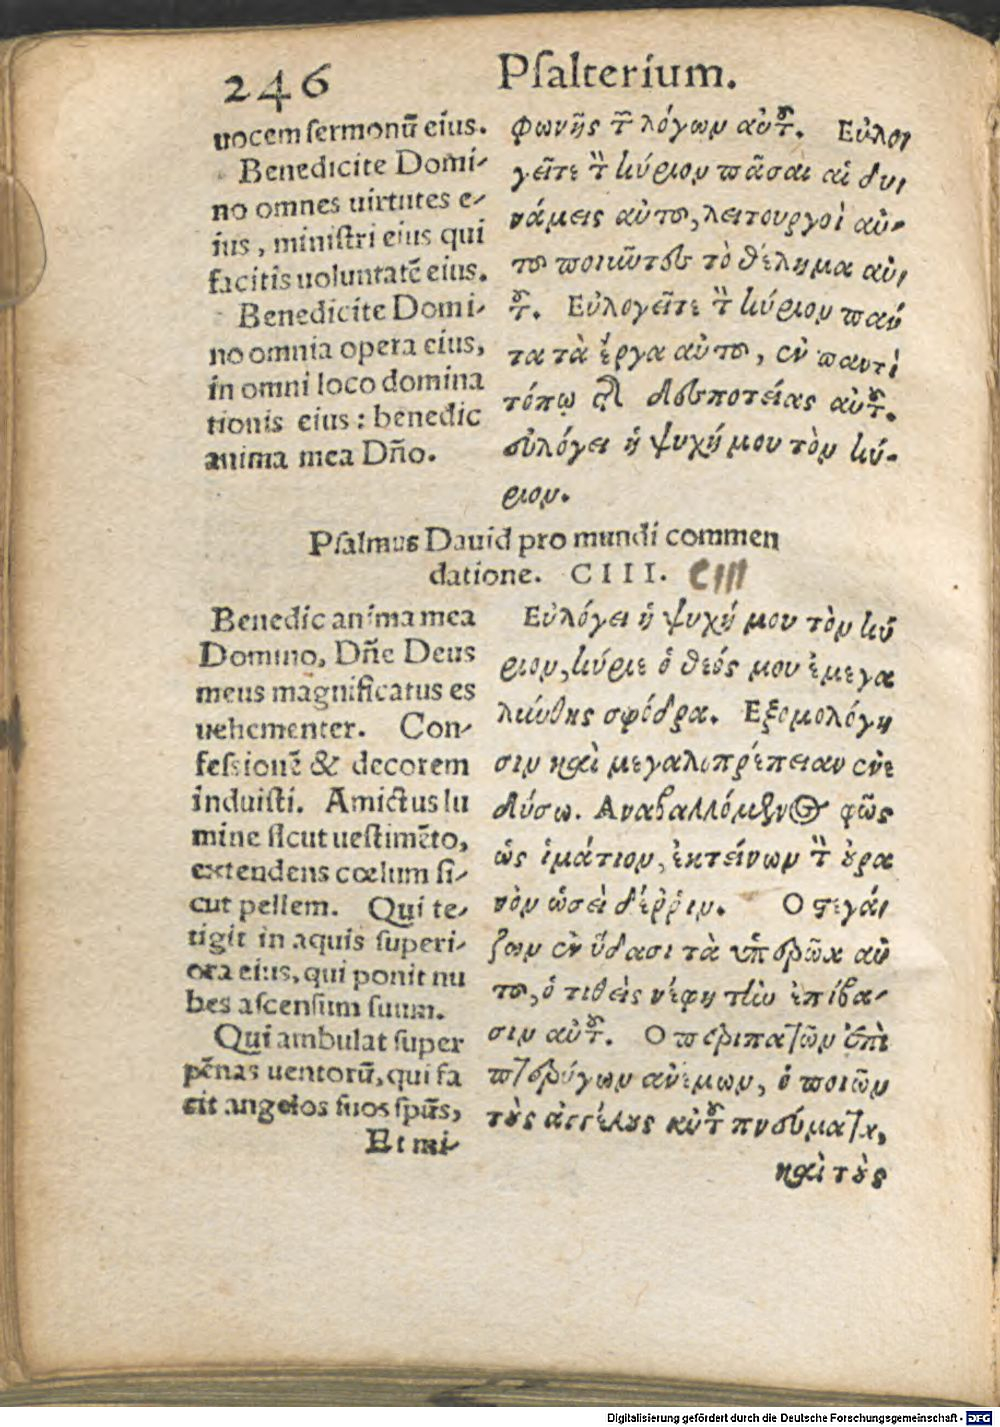 246 Psalterium.
uocem sermonũ eius.
Benedicite Domi-
no omnes uirtutes e-
ius, ministri eius qui
facitis uoluntatẽ eius.
Benedicite Domi-
no omnia opera eius,
in omni loco domina
tionis eius: benedic
anima mea Dño.
φωνῆς τῶν λόγων αὐτοῦ. Εὐλο-
γεῖτε τὸν κύριον πᾶσαι αἱ δυ-
νάμεις αὐτοῦ, λειτουργοὶ αὐ-
τοῦ ποιοῦντες τὸ θέλημα αὐ-
τοῦ. Εὐλογεῖτε τὸν κύριον πάν
τα τὰ ἔργα αὐτοῦ, ἐν παντὶ
τόπῳ τῆς δεσποτείας αὐτοῦ.
εὐλόγει ἡ ψυχή μου τὸν κύ-
ριον.
Psalmus Dauid pro mundi commen
datione. CIII. CIII
Benedic anima mea
Domino, Dñe Deus
meus magnificatus es
uehementer. Con-
fessionẽ & decorem
induisti. Amictus lu
mine sicut uestimẽto,
extendens cœlum si-
cut pellem. Qui te-
tigit in aquis superi-
ora eius, qui ponit nu
bes ascensum suum.
Qui ambulat super
pẽnas uentorũ, qui fa
cit angelos suos spũs,
Et mi-
Εὐλόγει ἡ ψυχή μου τὸν κύ
ριον, κύριε ὁ θεός μου ἐμεγα
λύνθης σφόδρα. Εξομολόγη
σιν καὶ μεγαλοπρέπειαν ἐνε
δύσω. Αναβαλλόμενος φῶς
ὡς ἱμάτιον, ἐκτείνων τὸν οὐρα
νὸν ὡσεὶ δέρριν. Ο στεγά-
ζων ἐν ὕδασι τὰ ὑπερῷα αὐ
τοῦ, ὁ τιθεὶς νέφη τὴν ἐπίβα-
σιν αὐτοῦ. Ο περιπατῶν ἐπὶ
πτερύγων ἀνέμων, ὁ ποιῶν
τοὺς ἀγγέλους αὐτοῦ πνεύματα,
καὶ τοὺς
Digitalisierung gefördert durch die Deutsche Forschungsgemeinschaft - DFG